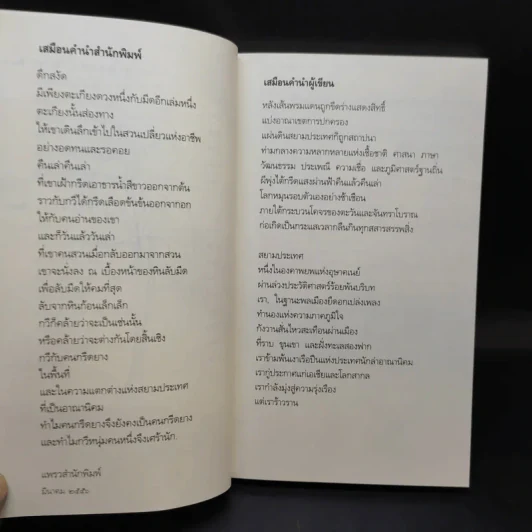 เสมือนคำนำสำนักพิมพ์
ดึกสงัด
มีเพียงตะเกียงดวงหนึ่งกับมีดอีกเล่มหนึ่ง
ตะเกียงนั้นส่องทาง
ให้เขาเดินลึกเข้าไปในสวนเปลี่ยวแห่งอาชีพ
อย่างอดทนและรอคอย
คืนเล่าคืนเล่า
ที่เขาเฝ้ากรีดเอาธารน้ำสีขาวออกจากต้น
ราวกับกวีได้กรีดเลือดข้นข้นออกจากอก
ให้กับคนอ่านของเขา
และกี่วันแล้ววันเล่า
ที่เขาคนสวนเมื่อกลับออกมาจากสวน
เขาจะนั่งลง ณ เบื้องหน้าของหินลับมีด
เพื่อลับมีดให้คมที่สุด
ลับจากหินก้อนเล็กเล็ก
กวีก็คล้ายว่าจะเป็นเช่นนั้น
หรือคล้ายว่าจะต่างกันโดยสิ้นเชิง
กวีกับคนกรีดยาง
ในพื้นที่
และในความแตกต่างแห่งสยามประเทศ
ที่เป็นอาณานิคม
ทำไมคนกรีดยางจึงยังคงเป็นคนกรีดยาง
และทำไมกวีหนุ่มคนหนึ่งจึงเศร้านัก.
แพรวสำนักพิมพ์
มีนาคม ๒๕๕๖
เสมือนคำนำผู้เขียน
หลังเส้นพรมแดนถูกขีดร่างแสดงสิทธิ์
แบ่งอาณาเขตการปกครอง
แผ่นดินสยามประเทศก็ถูกสถาปนา
ท่ามกลางความหลากหลายแห่งเชื้อชาติ ศาสนา ภาษา
วัฒนธรรม ประเพณี ความเชื่อ และภูมิศาสตร์ฐานถิ่น
ผีพุ่งใต้กรีดแสงผ่านฟ้าคืนแล้วคืนเล่า
โลกหมุนรอบตัวเองอย่างซ้ำเชือน
ภายใต้กระบวนโคจรของตะวันและจันทราโบราณ
ก่อเกิดเป็นกระแสเวลากลืนกินทุกสสารสรรพสิ่ง
สยามประเทศ
หนึ่งในองคาพยพแห่งอุษาคเนย์
ผ่านล่วงประวัติศาสตร์ร้อยพันบริบท
เรา, ในฐานะพลเมืองยืดอกเปล่งเพลง
ทำนองแห่งความภาคภูมิใจ
กังวานสั่นไหวสะเทือนผ่านเมือง
ที่ราบ ขุนเขา และฝั่งทะเลสองฟาก
เราข้ามพ้นเงาเรือปืนแห่งประเทศนักล่าอาณานิคม
เรากู่ประกาศแก่เอเชียและโลกสากล
เรากำลังมุ่งสู่ความรุ่งเรือง
แต่เราร้าวราน